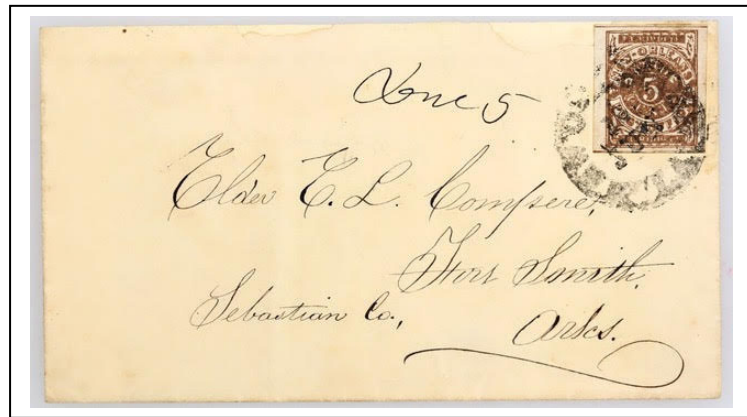 ORLEANS
5
Due 5
Elder E. L. Compere,
Fort Smith,
Sebastian Co.,
Arks.